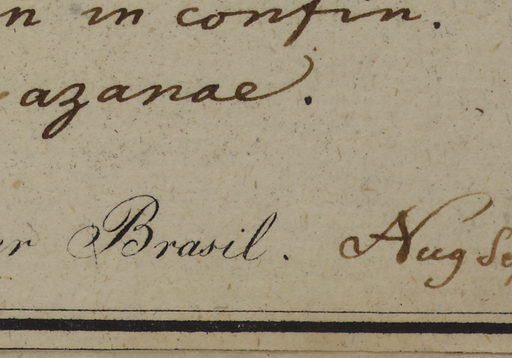 n in confin.
azanae.
er Brasil. Aug Se